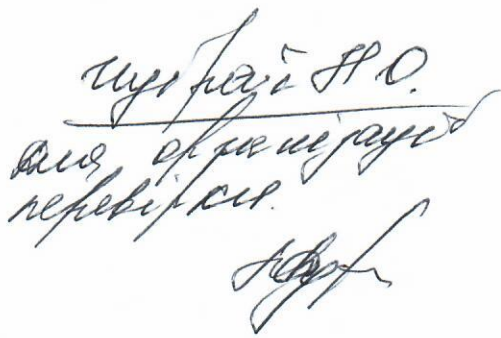 Шубраї Н.О.
для організації
перевірки.